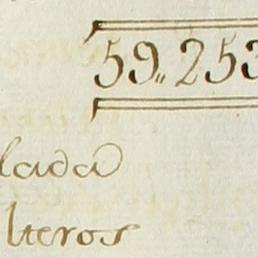 59,,253
lada
lteros